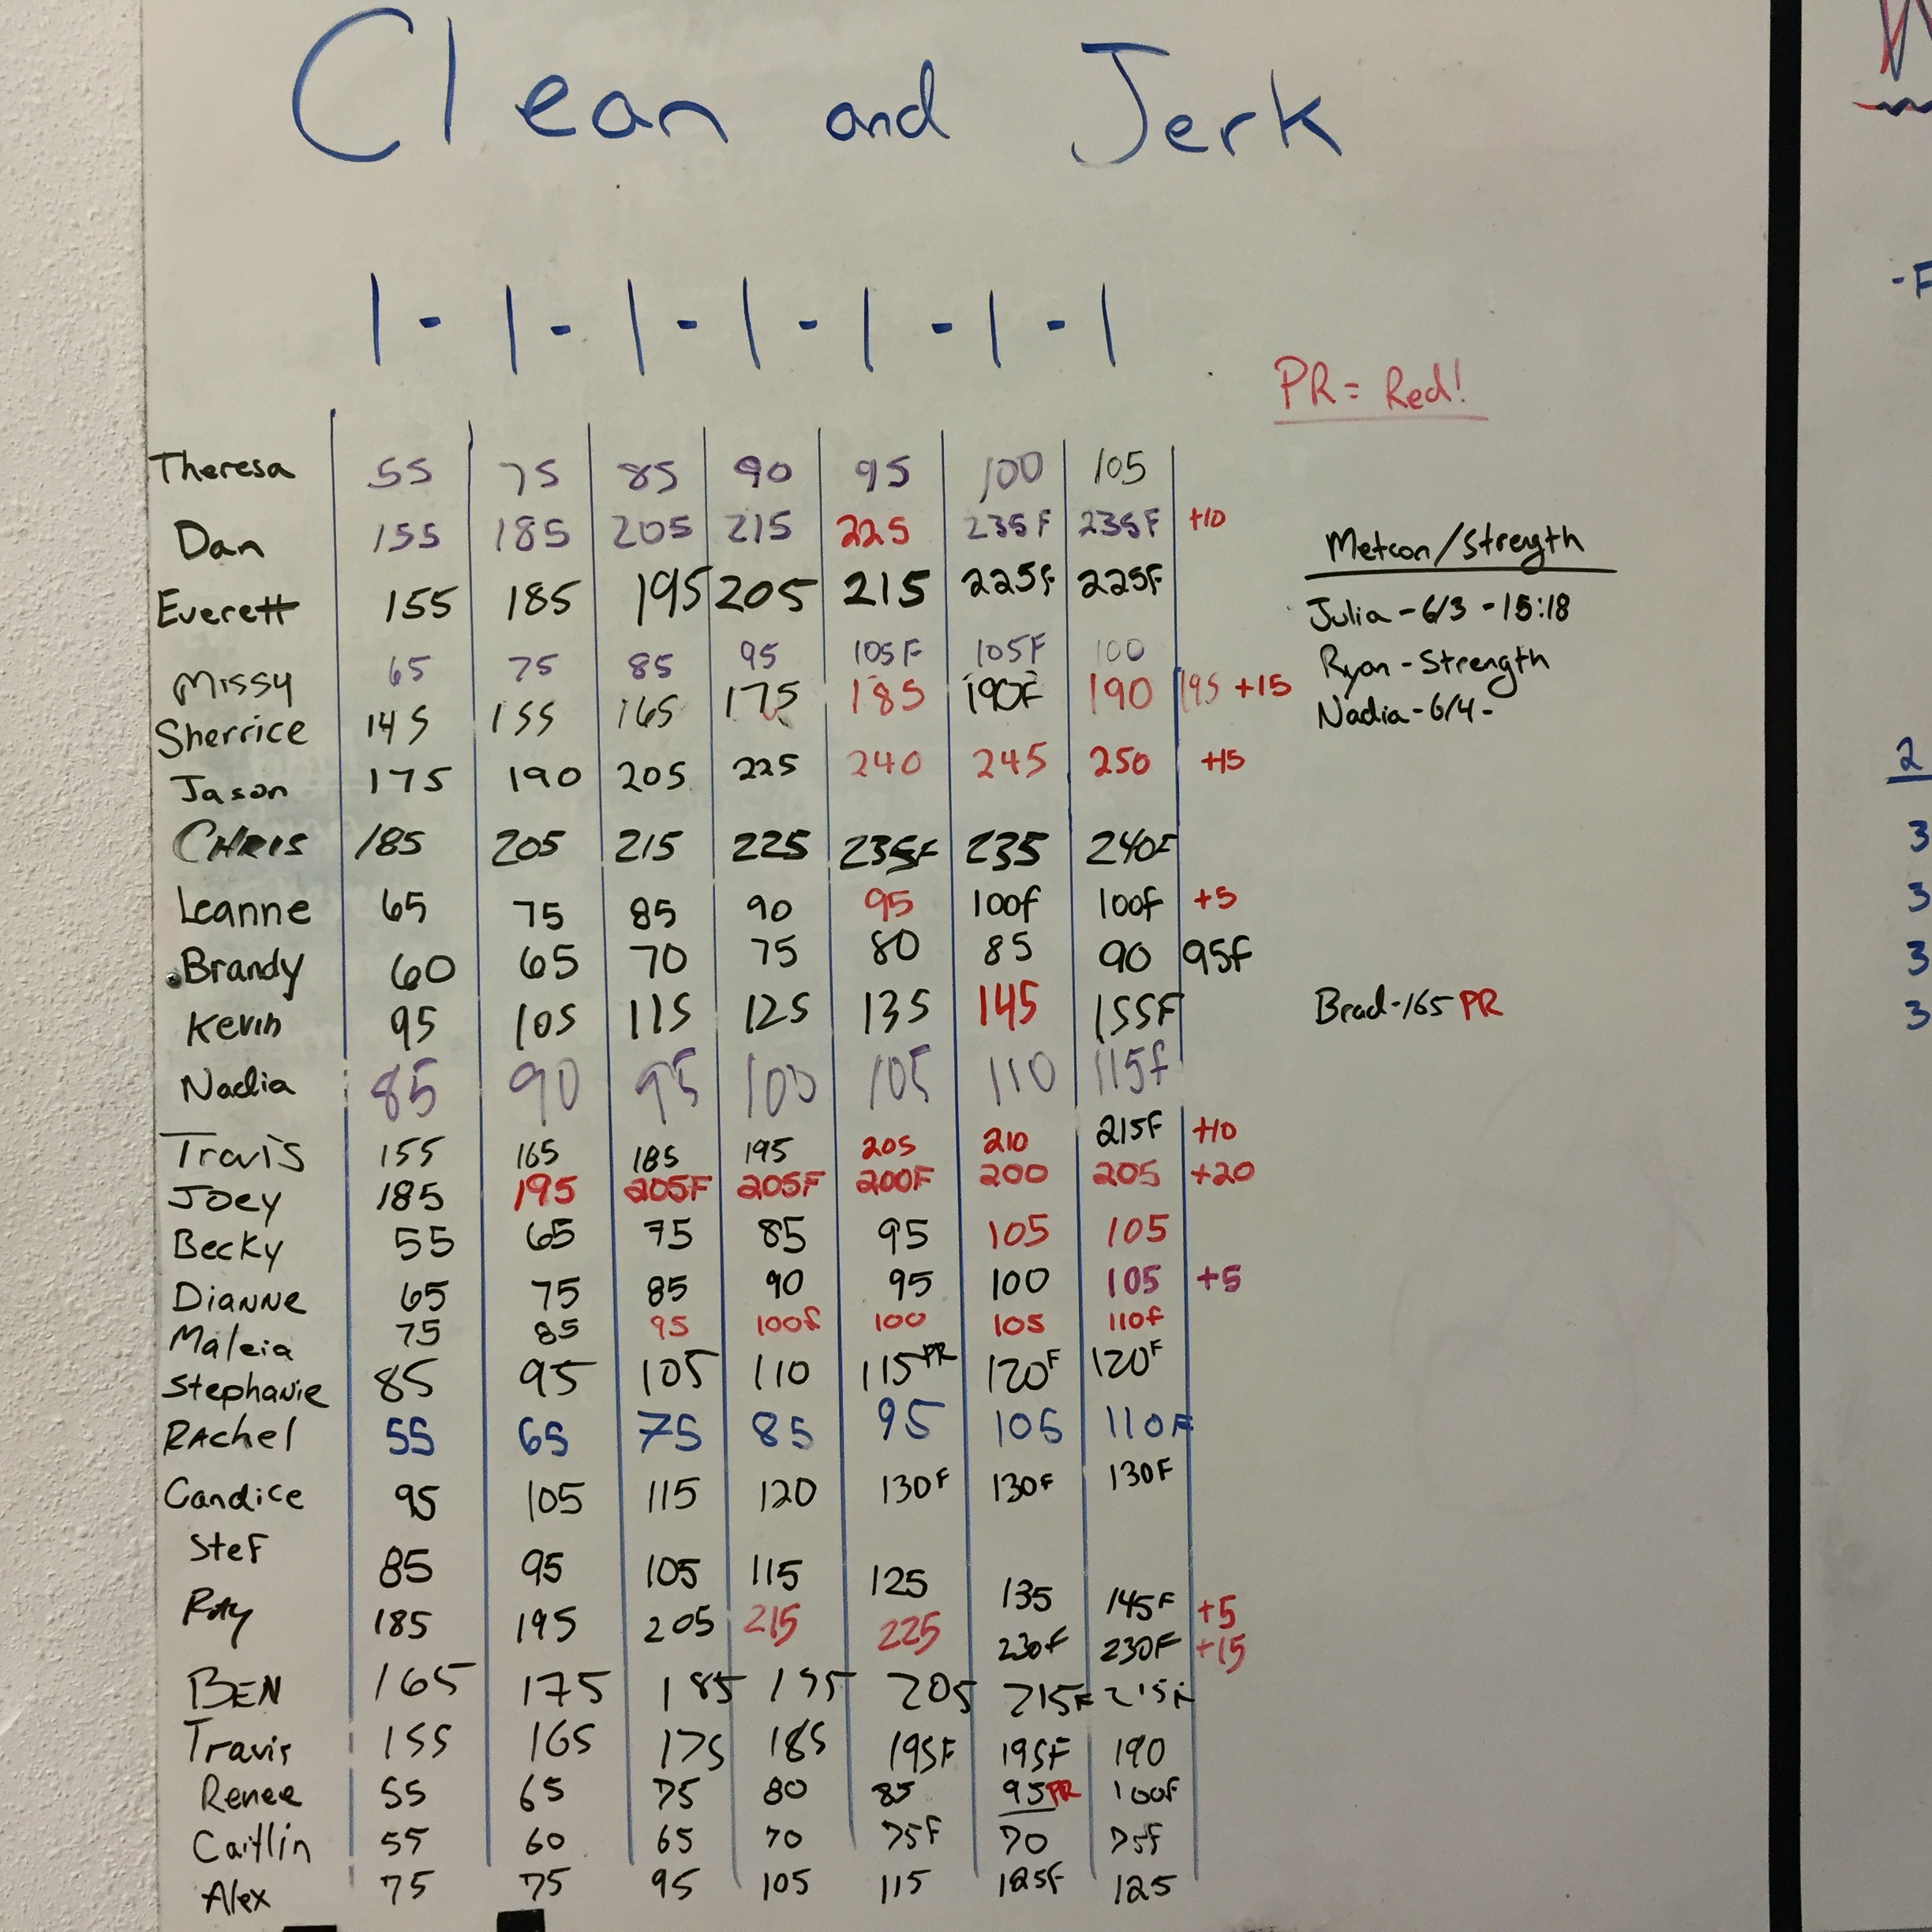 Clean and Jerk
1-1-1-1-1-1-1
PR = Red!
Theresa 55 75 85 90 95 100 105
Dan 155 185 205 215 225 235F 235F +10
Everett 155 185 195 205 215 225F 225F
Missy 65 75 85 95 105F 105F 100
Sherrice 145 155 165 175 185 190F 190 195 +15
Jason 175 190 205 225 240 245 250 +15
CHRIS 185 205 215 225 235F 235 240F
Leanne 65 75 85 90 95 100f 100f +5
Brandy 60 65 70 75 80 85 90 95f
Kevin 95 105 115 125 135 145 155F
Nadia 85 90 95 100 105 110 115f
Travis 155 165 185 195 205 210 215F +10
Joey 185 195 205F 205F 200F 200 205 +20
Becky 55 65 75 85 95 105 105
Dianne 65 75 85 90 95 100 105 +5
Maleia 75 85 95 100f 100 105 110f
Stephanie 85 95 105 110 115PR 120F 120F
RAchel 55 65 75 85 95 105 110F
Candice 95 105 115 120 130F 130F 130F
Stef 85 95 105 115 125 135 145F +5
RAy 185 195 205 215 225 230F 230F +15
BEN 165 175 185 195 205 215F 215F
Travis 155 165 175 185 195F 195F 190
Renee 55 65 75 80 85 95PR 100f
Caitlin 55 60 65 70 75F 70 75f
Alex 75 75 95 105 115 125f 125
Metcon/Strength
Julia - 6/3 - 15:18
Ryan - Strength
Nadia - 6/4 -
Brad - 165 PR
-F
2
3
3
3
3